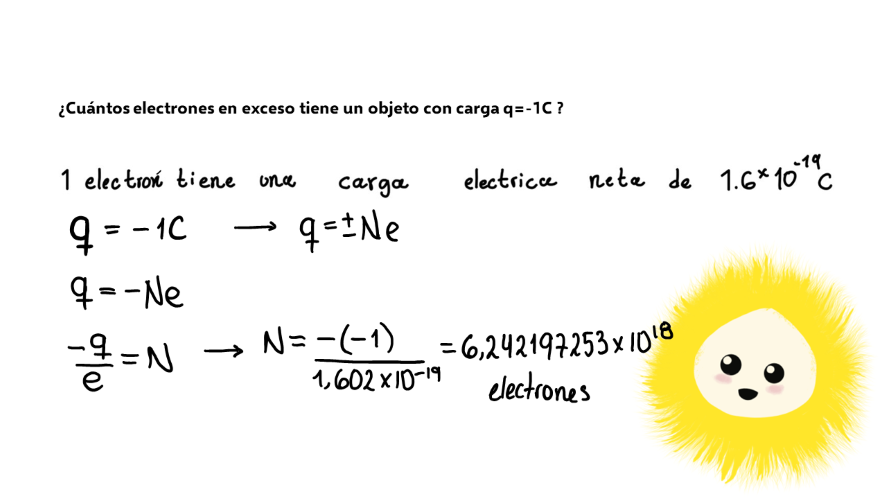 ¿Cuántos electrones en exceso tiene un objeto con carga q=-1C ?
1 electrón tiene una carga electrica neta de 1.6×10⁻¹⁹C
q = -1C → q=±Ne
q=-Ne
-q/e = N → N= -(-1)/1,602×10⁻¹⁹ = 6,242197253×10¹⁸
electrones